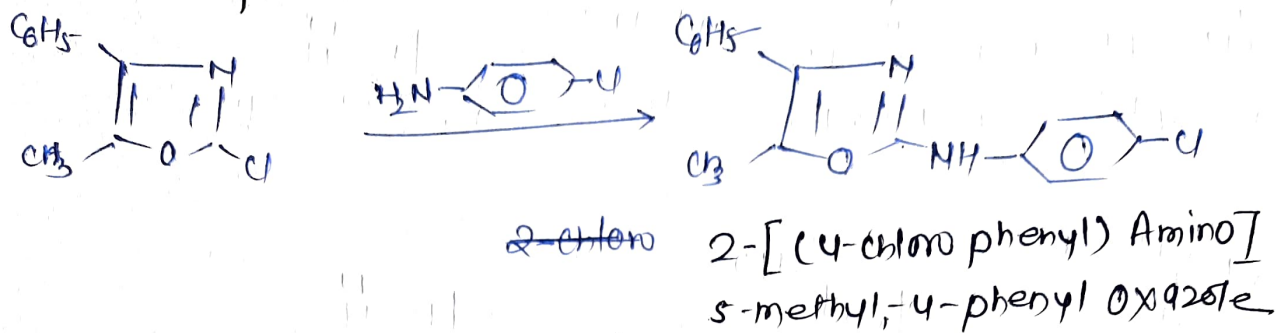 C6H5 N C6H5 N
H2N Cl
CH3 O Cl CH3 O NH Cl
2-chloro 2-[(4-chloro phenyl) Amino]
5-methyl,-4-phenyl oxazole